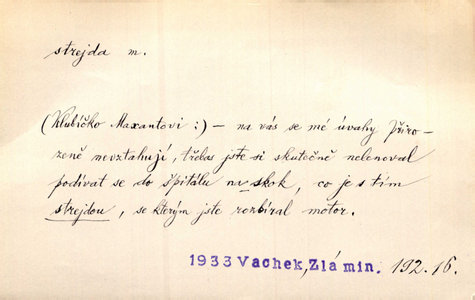 strejda m.
(Klubíčko Maxantovi:) – na vás se mé úvahy přiro-
zeně nevztahují, třebas jste si skutečně nelenoval
podívat se do špitálu na skok, co je s tím
strejdou, se kterým jste rozbíral motor.
1933 Vachek, Zlá min. 192.16.